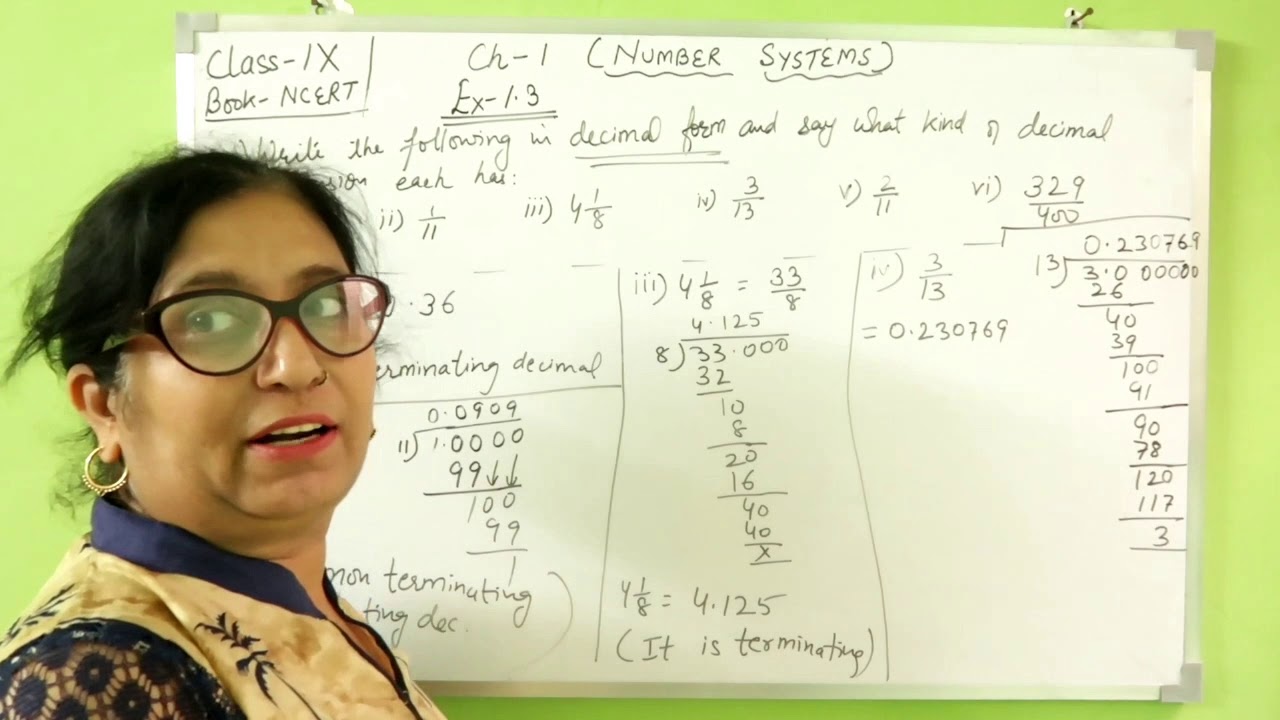 Class-IX
Book-NCERT
Ch-1 (NUMBER SYSTEMS)
Ex-1.3
Write the following in decimal form and say what kind of decimal
each has:
ii) 1/11 iii) 4 1/8 iv) 3/13 v) 2/11 vi) 329/400
.36
terminating decimal
0.0909
11)1.0000
99
100
99
1
non terminating
dec.
iii) 4 1/8 = 33/8
4.125
8)33.000
32
10
8
20
16
40
40
x
4 1/8 = 4.125
(It is terminating)
iv) 3/13
= 0.230769
0.230769
13)3.000000
26
40
39
100
91
90
78
120
117
3